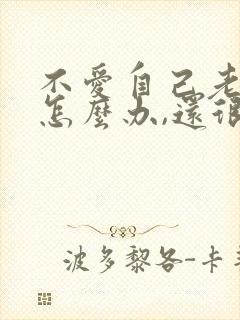 不愛自己老
怎麼办,還很
波多黎各-卡